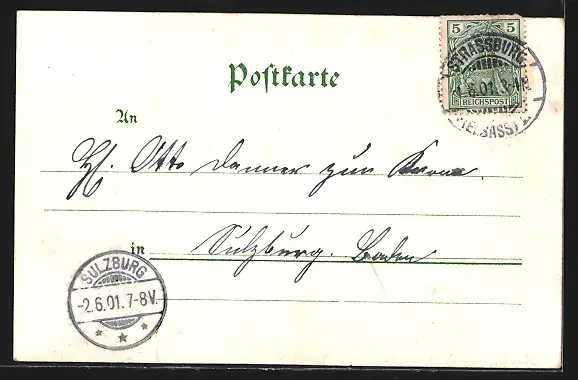 5 5
REICHSPOST
STRASSBURG
1.6.01.3-4N.
(ELSASS) 1.
Postkarte
An
H. Otto Danner zur Krone.
in Sulzburg. Baden
SULZBURG
-2.6.01.7-8V.